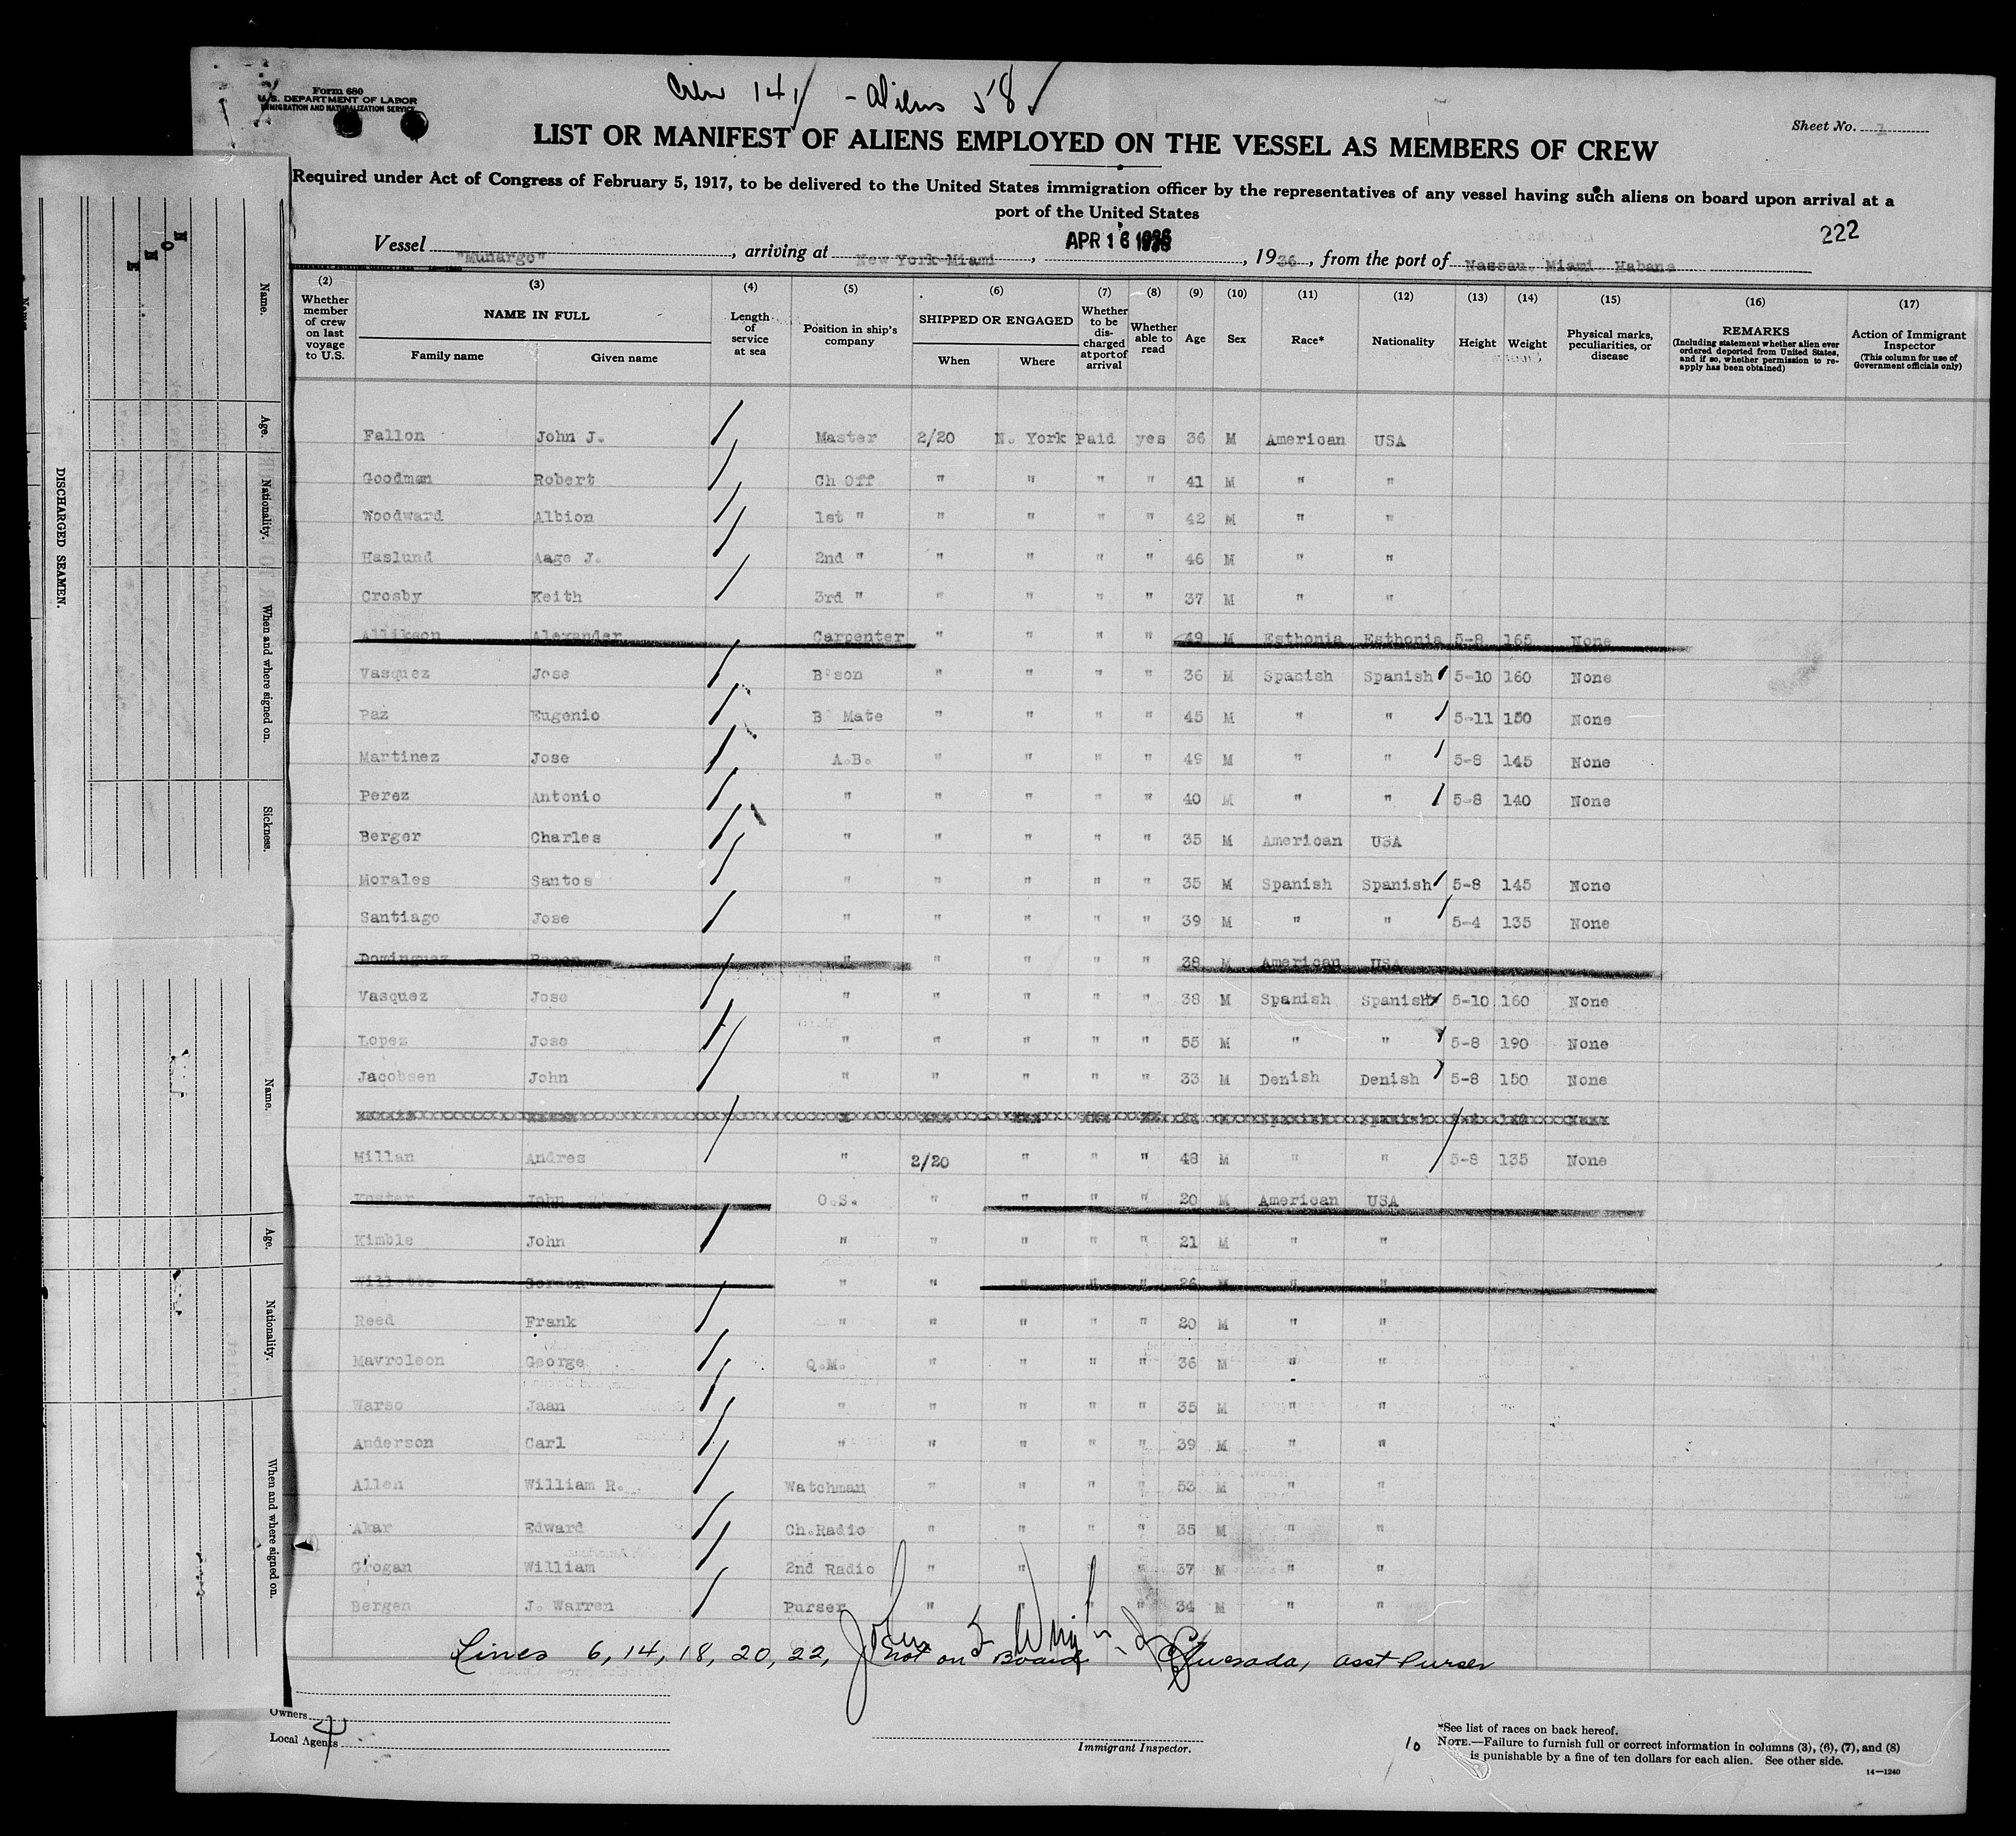 Crew 141 - Aliens 58
Form 680
U.S. DEPARTMENT OF LABOR
IMMIGRATION AND NATURALIZATION SERVICE
Sheet No. 1
LIST OR MANIFEST OF ALIENS EMPLOYED ON THE VESSEL AS MEMBERS OF CREW
Required under Act of Congress of February 5, 1917, to be delivered to the United States immigration officer by the representatives of any vessel having such aliens on board upon arrival at a
port of the United States
222
Vessel "Munargo", arriving at New York Miami, APR 16 1936, 1936, from the port of Nassau, Miami, Habana
(2) (3) (4) (5) (6) (7) (8) (9) (10) (11) (12) (13) (14) (15) (16) (17)
Whether member of crew on last voyage to U.S.
NAME IN FULL
Family name Given name
Length of service at sea
Position in ship's company
SHIPPED OR ENGAGED
When Where
Whether to be discharged at port of arrival
Whether able to read
Age Sex Race* Nationality Height Weight
Physical marks, peculiarities, or disease
REMARKS
(Including statement whether alien ever ordered deported from United States, and if so, whether permission to re-apply has been obtained)
Action of Immigrant Inspector
(This column for use of Government officials only)
Fallon John J. Master 2/20 N. York Paid yes 36 M American USA
Goodman Robert Ch Off " " " " 41 M " "
Woodward Albion 1st " " " " " 42 M " "
Haslund Aage J. 2nd " " " " " 46 M " "
Crosby Keith 3rd " " " " " 37 M " "
Allikson Alexander Carpenter " " " " 49 M Esthonia Esthonia 5-8 165 None
Vasquez Jose B'son " " " " 36 M Spanish Spanish 5-10 160 None
Paz Eugenio B' Mate " " " " 45 M " " 5-11 150 None
Martinez Jose A.B. " " " " 49 M " " 5-8 145 None
Perez Antonio " " " " " 40 M " " 5-8 140 None
Berger Charles " " " " " 35 M American USA
Morales Santos " " " " " 35 M Spanish Spanish 5-8 145 None
Santiago Jose " " " " " 39 M " " 5-4 135 None
Dominguez " " " " " 38 M American USA
Vasquez Jose " " " " " 38 M Spanish Spanish 5-10 160 None
Lopez Jose " " " " " 55 M " " 5-8 190 None
Jacobsen John " " " " " 33 M Denish Denish 5-8 150 None
Millan Andres " 2/20 " " " 48 M " " 5-8 135 None
Koster John O.S. " " " " 20 M American USA
Kimble John " " " " " 21 M " "
Willetts Gordon " " " " " 26 M " "
Reed Frank " " " " " 20 M " "
Mavroleon George Q.M. " " " " 36 M " "
Warso Jaan " " " " " 35 M " "
Anderson Carl " " " " " 39 M " "
Allen William R. Watchman " " " " 53 M " "
Akar Edward Ch.Radio " " " " 35 M " "
Grogan William 2nd Radio " " " " 37 M " "
Bergen J. Warren Purser " " " " 34 M " "
Lines 6, 14, 18, 20, 22, not on Board - Quesada, Asst Purser
Owners
Local Agents
Immigrant Inspector.
10
*See list of races on back hereof.
NOTE.—Failure to furnish full or correct information in columns (3), (6), (7), and (8)
is punishable by a fine of ten dollars for each alien. See other side.
14—1240
NONE
DISCHARGED SEAMEN.
Name.
Age.
Nationality.
When and where signed on.
Sickness.
Name.
Age.
Nationality.
When and where signed on.